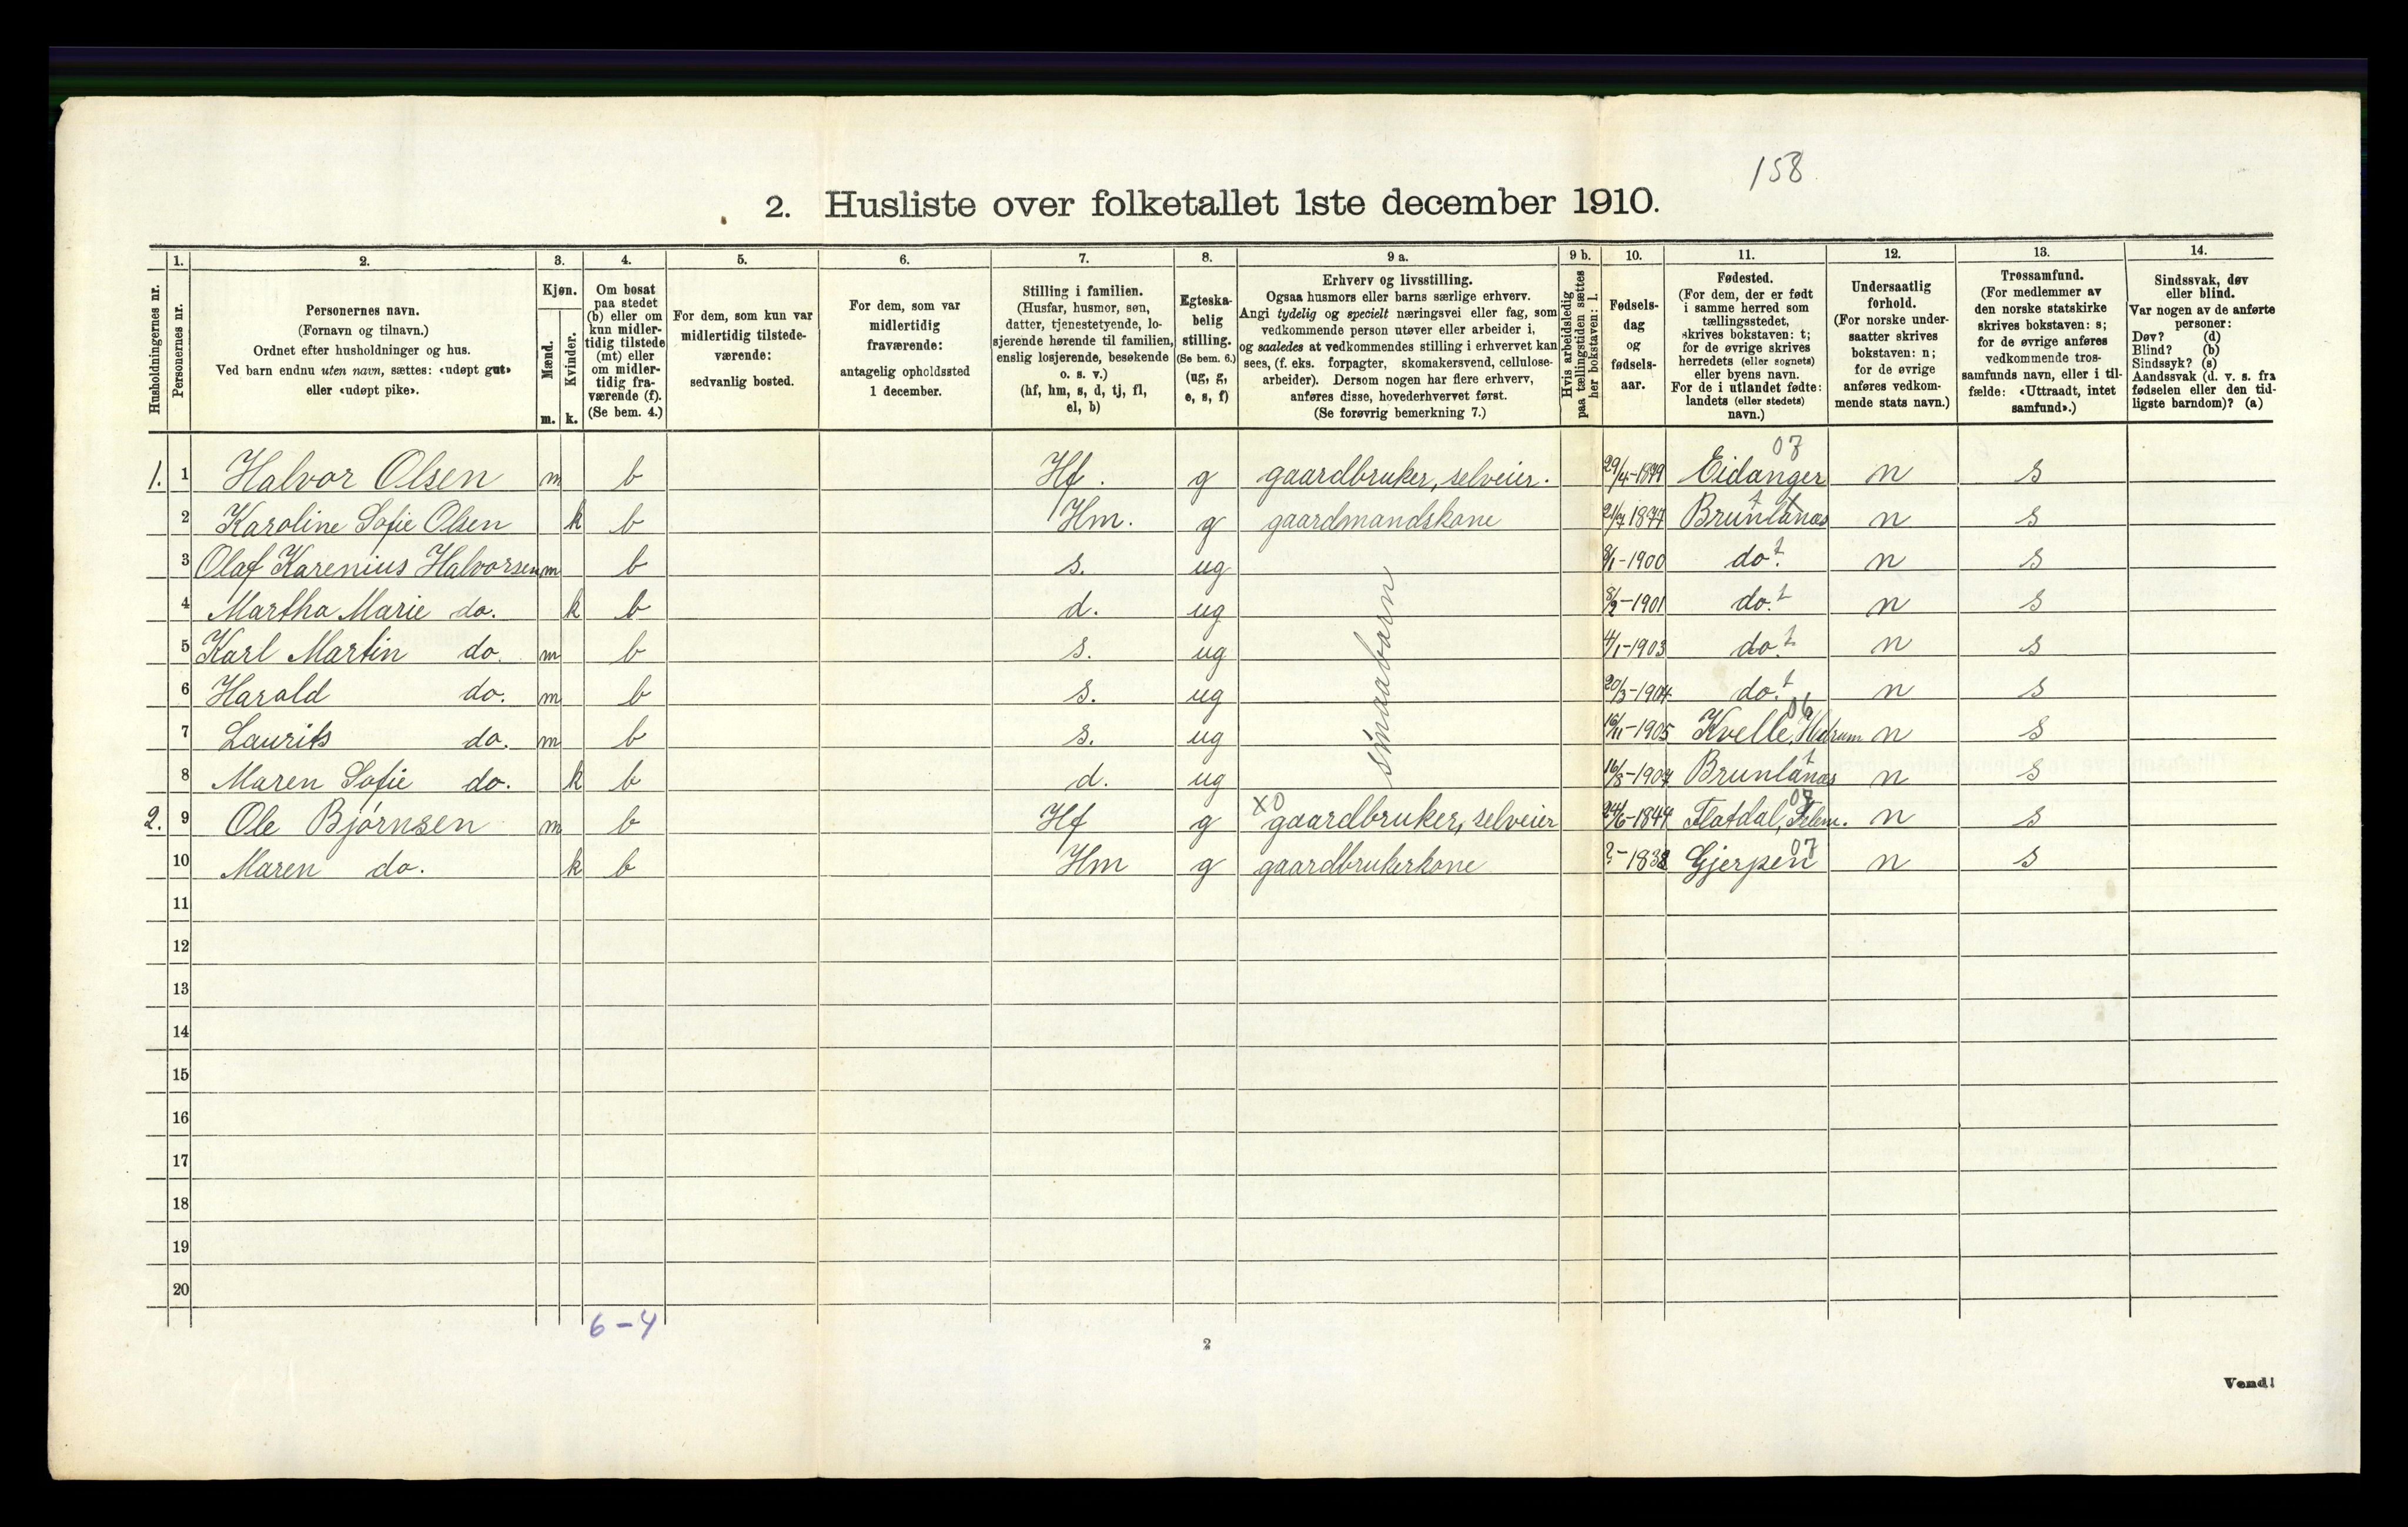 158
2. Husliste over folketallet 1ste december 1910.
Husholdningernes nr.
1.
Personernes nr.
2.
Personernes navn.
(Fornavn og tilnavn.)
Ordnet efter husholdninger og hus.
Ved barn endnu uten navn, sættes: «udøpt gut»
eller «udøpt pike».
3.
Kjøn.
Mænd.
Kvinder.
m. k.
4.
Om bosat
paa stedet
(b) eller om
kun midler-
tidig tilstede
(mt) eller
om midler-
tidig fra-
værende (f).
(Se bem. 4.)
5.
For dem, som kun var
midlertidig tilstede-
værende:
sedvanlig bosted.
6.
For dem, som var
midlertidig
fraværende:
antagelig opholdssted
1 december.
7.
Stilling i familien.
(Husfar, husmor, søn,
datter, tjenestetyende, lo-
sjerende hørende til familien,
enslig losjerende, besøkende
o. s. v.)
(hf, hm, s, d, tj, fl,
el, b)
8.
Egteska-
belig
stilling.
(Se bem. 6.)
(ug, g,
e, s, f)
9 a.
Erhverv og livsstilling.
Ogsaa husmors eller barns særlige erhverv.
Angi tydelig og specielt næringsvei eller fag, som
vedkommende person utøver eller arbeider i,
og saaledes at vedkommendes stilling i erhvervet kan
sees, (f. eks. forpagter, skomakersvend, cellulose-
arbeider). Dersom nogen har flere erhverv,
anføres disse, hovederhvervet først.
(Se forøvrig bemerkning 7.)
9 b.
Hvis arbeidsledig
paa tællingstiden sættes
her bokstaven: l.
10.
Fødsels-
dag
og
fødsels-
aar.
11.
Fødested.
(For dem, der er født
i samme herred som
tællingsstedet,
skrives bokstaven: t;
for de øvrige skrives
herredets (eller sognets)
eller byens navn.
For de i utlandet fødte:
landets (eller stedets)
navn.)
12.
Undersaatlig
forhold.
(For norske under-
saatter skrives
bokstaven: n;
for de øvrige
anføres vedkom-
mende stats navn.)
13.
Trossamfund.
(For medlemmer av
den norske statskirke
skrives bokstaven: s;
for de øvrige anføres
vedkommende tros-
samfunds navn, eller i til-
fælde: «Uttraadt, intet
samfund».)
14.
Sindssvak, døv
eller blind.
Var nogen av de anførte
personer:
Døv? (d)
Blind? (b)
Sindssyk? (s)
Aandssvak (d. v. s. fra
fødselen eller den tid-
ligste barndom)? (a)
1. 1 Halvor Olsen m b Hf. g gaardbruker, selveier. 29/4-1879 Eidanger 07 n s
2 Karoline Sofie Olsen k b Hm. g gaardmandskone 21/7 1877 Brunlanæs t n s
3 Olaf Karenius Halvorsen m b s. ug 8/1-1900 do. t n s
4 Martha Marie do. k b d. ug 8/2-1901 do. t n s
5 Karl Martin do. m b s. ug 4/1-1903 do. t n s
6 Harald do. m b s. ug 20/3-1904 do. t n s
7 Laurits do. m b s. ug 15/11-1905 Kvelle, Hedrum 06 n s
8 Maren Sofie do. k b d. ug 16/8-1907 Brunlanæs t n s
smaabarn
2. 9 Ole Bjørnsen m b Hf g XO gaardbruker, selveier 24/6-1844 Flatdal, Telem. 07 n s
10 Maren do. k b Hm g gaardbrukerkone ?-1838 Gjerpen 07 n s
11
12
13
14
15
16
17
18
19
20
6-4
2
Vend!